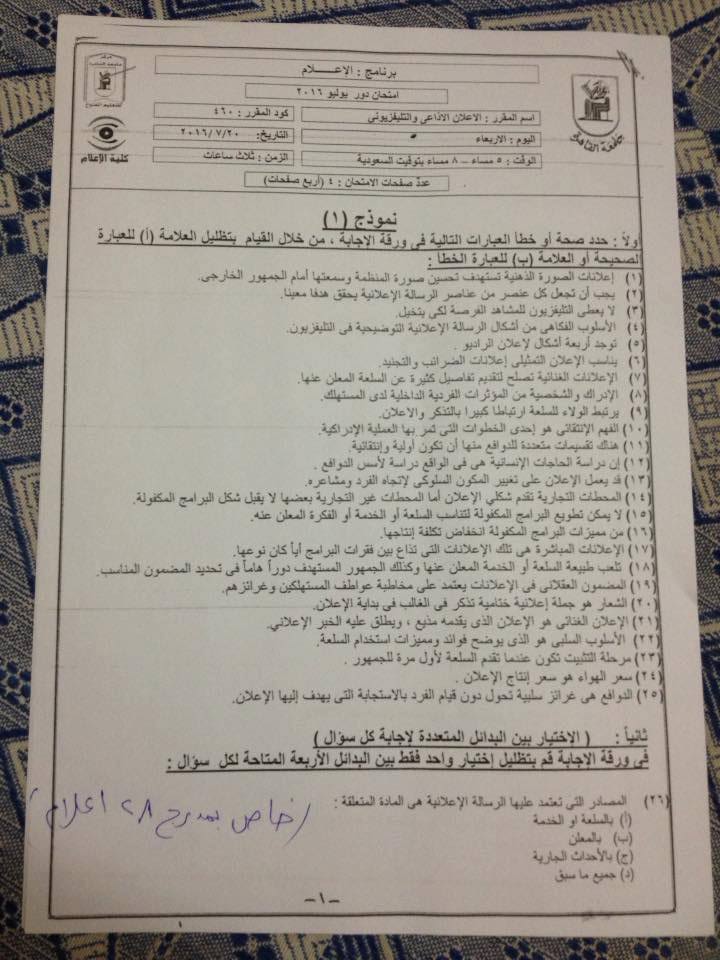 برنامج : الإعـــــلام
امتحان دور يوليو ٢٠١٦
اسم المقرر : الاعلان الاذاعى والتليفزيونى
كود المقرر : ٤٦٠
اليوم : الاربعاء
التاريخ: ٢٠١٦/٧/٢٠
الوقت : ٥ مساء – ٨ مساء بتوقيت السعودية
الزمن : ثلاث ساعات
عدد صفحات الامتحان : ٤ (أربع صفحات)
جامعة القاهرة
كلية الإعلام
نموذج (١)
أولاً : حدد صحة أو خطأ العبارات التالية فى ورقة الإجابة ، من خلال القيام بتظليل العلامة (أ) للعبارة
الصحيحة أو العلامة (ب) للعبارة الخطأ :
(١) إعلانات الصورة الذهنية تستهدف تحسين صورة المنظمة وسمعتها أمام الجمهور الخارجى.
(٢) يجب أن تجعل كل عنصر من عناصر الرسالة الإعلانية يحقق هدفا معينا.
(٣) لا يعطى التليفزيون للمشاهد الفرصة لكى يتخيل.
(٤) الأسلوب الفكاهى من أشكال الرسالة الإعلانية التوضيحية فى التليفزيون.
(٥) توجد أربعة أشكال لإعلان الراديو .
(٦) يناسب الإعلان التمثيلى إعلانات الضرائب والتجنيد.
(٧) الإعلانات الغنائية تصلح لتقديم تفاصيل كثيرة عن السلعة المعلن عنها.
(٨) الإدراك والشخصية من المؤثرات الفردية الداخلية لدى المستهلك.
(٩) يرتبط الولاء للسلعة ارتباطا كبيرا بالتذكر والاعلان.
(١٠) الفهم الإنتقائى هو إحدى الخطوات التى تمر بها العملية الإدراكية.
(١١) هناك تقسيمات متعددة للدوافع منها أن تكون أولية وإنتقائية.
(١٢) إن دراسة الحاجات الإنسانية هى فى الواقع دراسة لأسس الدوافع .
(١٣) قد يعمل الإعلان على تغيير المكون السلوكى لإتجاه الفرد ومشاعره.
(١٤) المحطات التجارية تقدم شكلي الإعلان أما المحطات غير التجارية بعضها لا يقبل شكل البرامج المكفولة.
(١٥) لا يمكن تطويع البرامج المكفولة لتتناسب السلعة أو الخدمة أو الفكرة المعلن عنه.
(١٦) من مميزات البرامج المكفولة انخفاض تكلفة إنتاجها.
(١٧) الإعلانات المباشرة هى تلك الإعلانات التى تذاع بين فقرات البرامج أياً كان نوعها.
(١٨) تلعب طبيعة السلعة أو الخدمة المعلن عنها وكذلك الجمهور المستهدف دوراً هاماً فى تحديد المضمون المناسب.
(١٩) المضمون العقلانى فى الإعلانات يعتمد على مخاطبة عواطف المستهلكين وغرائزهم.
(٢٠) الشعار هو جملة إعلانية ختامية تذكر فى الغالب فى بداية الإعلان.
(٢١) الإعلان الغنائى هو الإعلان الذى يقدمه مذيع ، ويطلق عليه الخبر الإعلاني.
(٢٢) الأسلوب السلبى هو الذى يوضح فوائد ومميزات استخدام السلعة.
(٢٣) مرحلة التثبيت تكون عندما تقدم السلعة لأول مرة للجمهور .
(٢٤) سعر الهواء هو سعر إنتاج الإعلان .
(٢٥) الدوافع هى غرائز سلبية تحول دون قيام الفرد بالاستجابة التى يهدف إليها الإعلان.
ثانياً : ( الاختيار بين البدائل المتعددة لإجابة كل سؤال )
فى ورقة الإجابة قم بتظليل إختيار واحد فقط بين البدائل الأربعة المتاحة لكل سؤال :
(٢٦) المصادر التى تعتمد عليها الرسالة الإعلانية هى المادة المتعلقة :
(أ) بالسلعة او الخدمة
(ب) بالمعلن
(ج) بالأحداث الجارية
(د) جميع ما سبق
(خاص بمدرج ٢٨ اعلام)
-١-